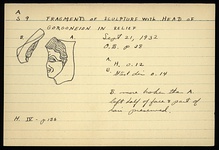 A
S 9 FRAGMENTS OF SCULPTURE WITH HEAD OF
GORGONEION IN RELIEF
Sept 21, 1932
O.B. p 28
B. A.
A.
H. 0.12
0.14
B more broken than A
left half of face & part of
preserved.
H. IV - p 133